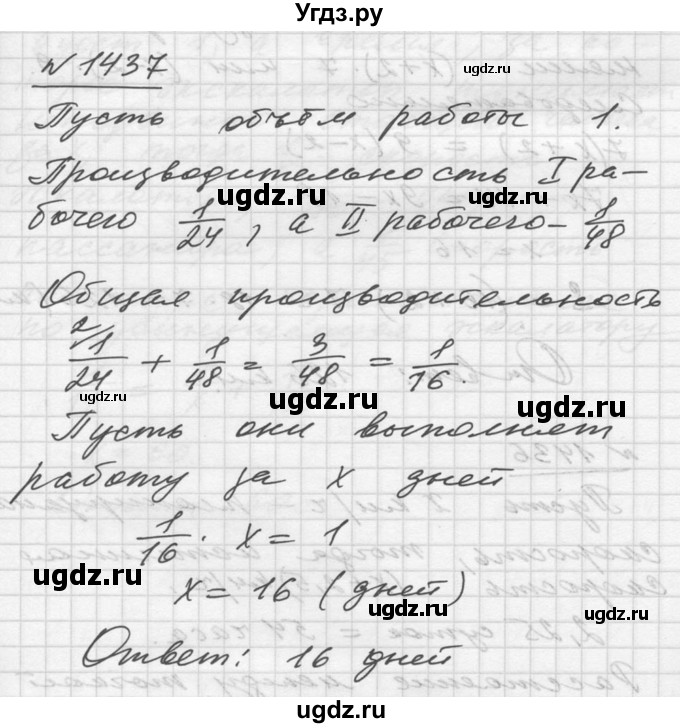 Угдз.ру
№ 1437
Пусть объём работы 1.
Производительность I ра-
бочего 1/24, а II рабочего - 1/48
Общая производительность
2/ 1/24 + 1/48 = 3/48 = 1/16.
Пусть они выполнят
работу за x дней
1/16 · x = 1
x = 16 (дней)
Ответ: 16 дней
ugdz.ru
ugdz.ru
ugdz.ru
ugdz.ru
ugdz.ru
ugdz.ru
ugdz.ru
ugdz.ru
ugdz.ru
ugdz.ru
ugdz.ru
ugdz.ru
ugdz.ru
ugdz.ru